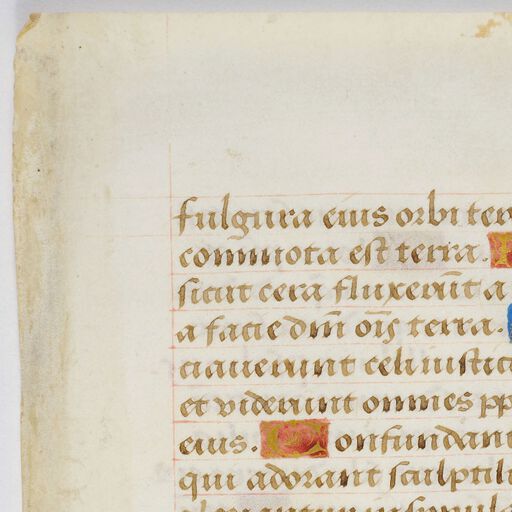 fulgura eius orbi ter
commota est terra.
sicut cera fluxerūt a
a facie dn̄i oīs terra.
ciauerunt celi iustici
et viderunt omnes pp
eius. Confundant
qui adorant sculptili